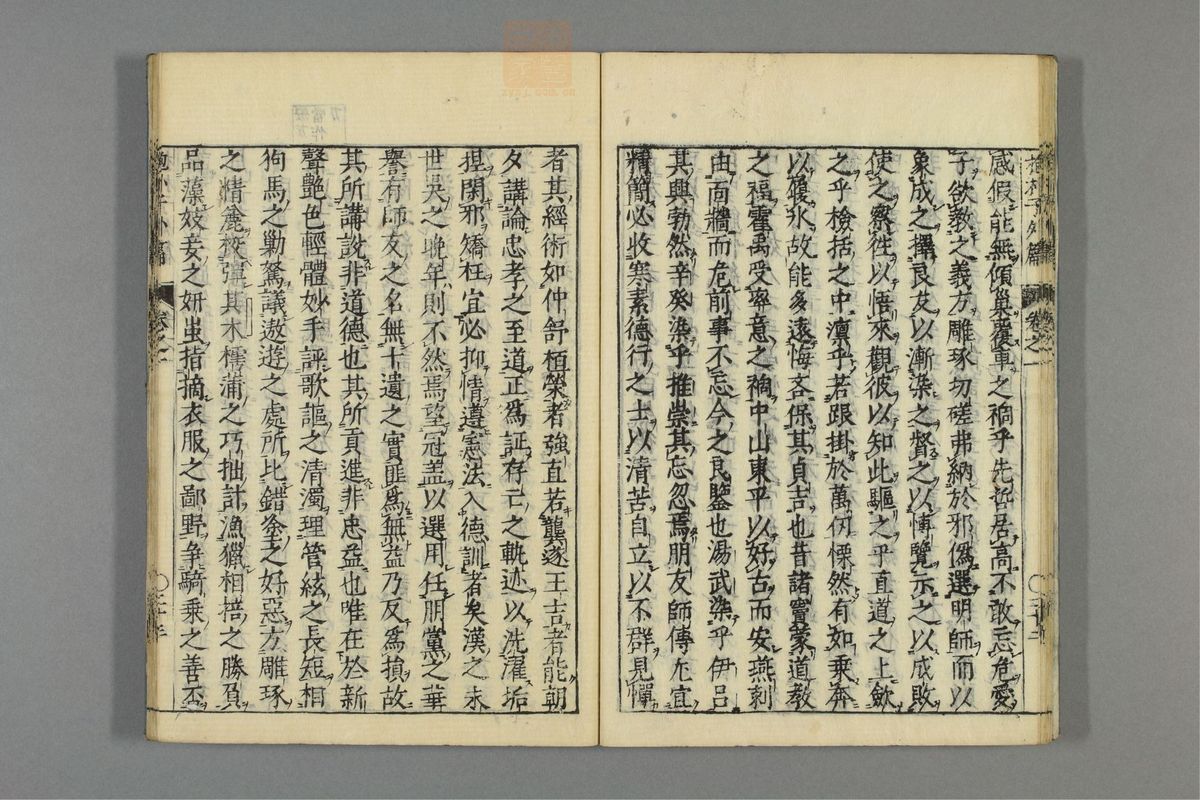 感假能無傾巢覆車之禍乎先哲居高不敢忘危愛
子欲教之義方雕琢切磋弗納於邪偽選明師而以
象成之擇良友以漸染之督之以博覽示之以成敗
使之察往以悟來觀彼以知此驅之乎直道之上歛
之乎檢括之中凜乎若跟掛於萬仞慄然有如乗奔
以履氷故能多遠悔吝保其貞吉也昔諸竇蒙道教
之福霍禹受率意之禍中山東平以好古而安燕剌
由面牆而危前事不忘今之良鑒也湯武染乎伊呂
其興勃然辛癸染乎推崇其忘忽焉朋友師傳尤宜
精簡必收寒素德行之士以清苦自立以不群見憚
者其經術如仲舒桓榮者強直若龔遂王吉者能朝
夕講論忠孝之至道正為証存亡之軌迹以洗濯垢
捏閑邪矯枉宜必抑情遵憲法入德訓者矣漢之末
世吳之晚年則不然焉望冠盖以選用任朋黨之華
譽有師友之名無十遺之實匪為無益乃反為損故
其所講説非道德也其所貢進非忠益也唯在於新
聲艷色輕體妙手評歌謳之清濁理管絃之長短相
狗馬之勦駑議遨遊之處所比錯塗之好惡方雕琢
之精麁校彈其木樗蒲之巧拙計漁獵相掊之勝負
品藻妓妾之妍蚩指摘衣服之鄙野争騎乗之善否